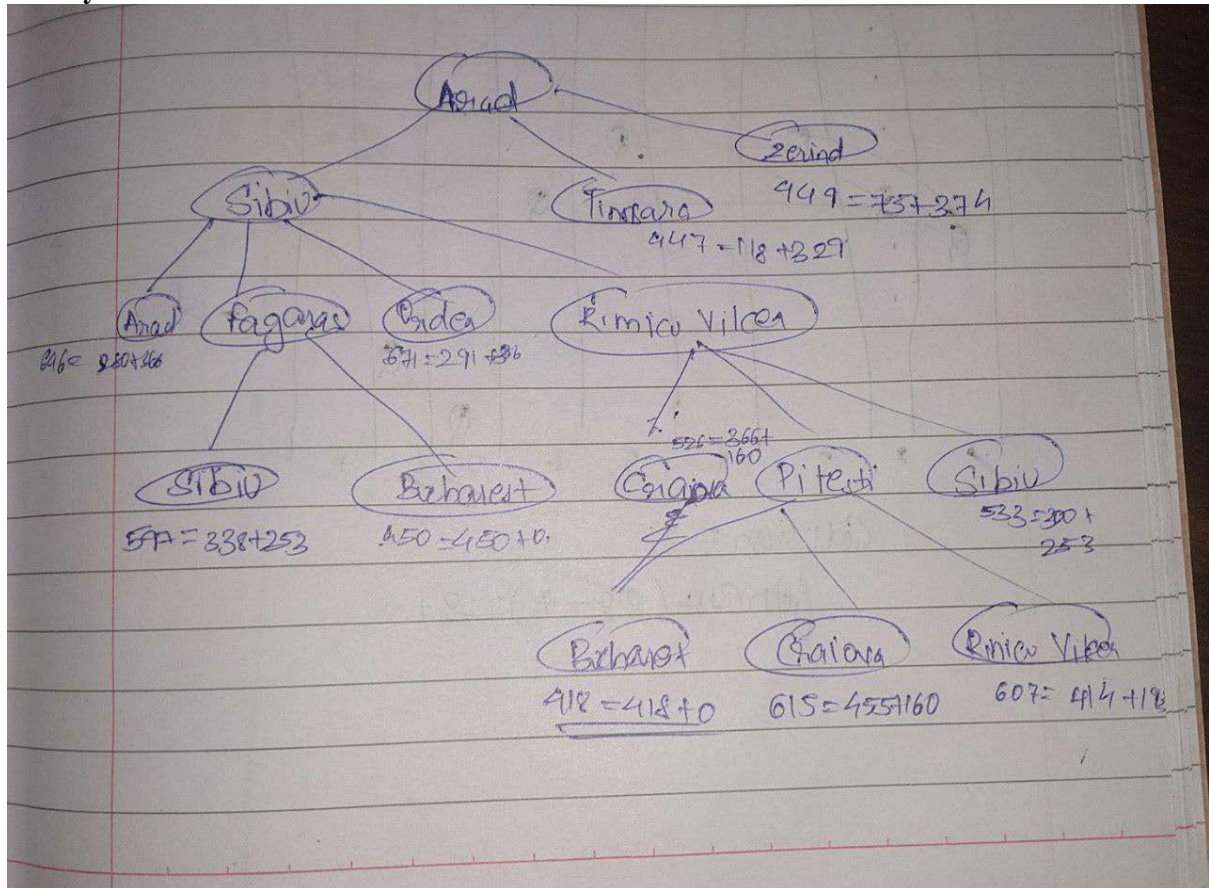 Arad
Zerind
449 = 75+374
Sibiu
Timsara
447 = 118 +329
Arad
Fagaras
Ordea
Rimicu Vilcea
646 = 280+366
671 = 291 +
526 = 366+
160
Sibiu
Bucharest
Craiova
Pitesti
Sibiu
= 338+253
450 = 450+0
533 = 300 +
253
Bucharest
Craiova
Rimicu Vilcea
418 = 418 +0
615 = 455+160
607 = 414 +